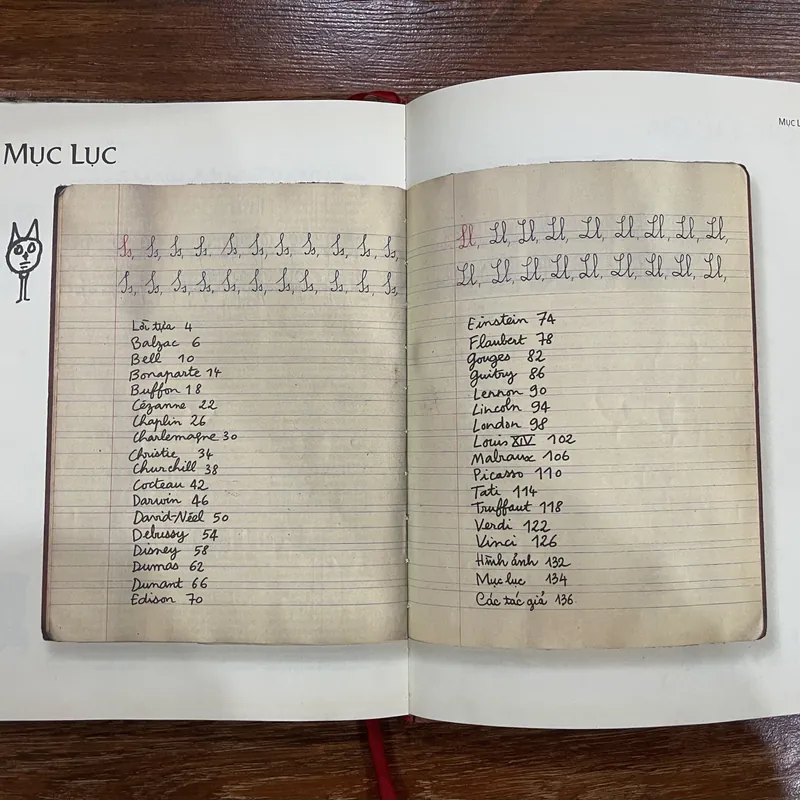 MỤC LỤC
Ss, Ss, Ss, Ss, Ss, Ss, Ss, Ss, Ss, Ss, Ss,
Ss, Ss, Ss, Ss, Ss, Ss, Ss, Ss, Ss, Ss, Ss,
Lời tựa 4
Balzac 6
Bell 10
Bonaparte 14
Buffon 18
Cézanne 22
Chaplin 26
Charlemagne 30
Christie 34
Churchill 38
Cocteau 42
Darwin 46
David-Néel 50
Debussy 54
Disney 58
Dumas 62
Dunant 66
Edison 70
MỤC L
Ll, Ll, Ll, Ll, Ll, Ll, Ll, Ll, Ll,
Ll, Ll, Ll, Ll, Ll, Ll, Ll, Ll, Ll,
Einstein 74
Flaubert 78
Gouges 82
Guitry 86
Lennon 90
Lincoln 94
London 98
Louis XIV 102
Malraux 106
Picasso 110
Tati 114
Truffaut 118
Verdi 122
Vinci 126
Hình ảnh 132
Mục lục 134
Các tác giả 136